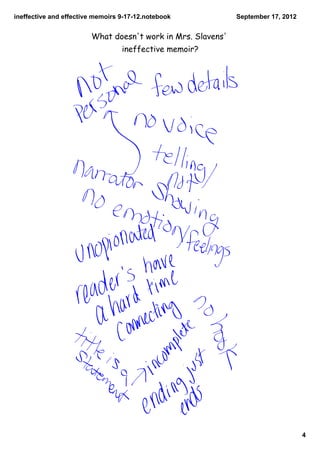 ineffective and effective memoirs 9-17-12.notebook
September 17, 2012
What doesn't work in Mrs. Slavens'
ineffective memoir?
Not
Personal
few details
no voice
telling/
not
showing
Narrator
no emotion/
feelings
unopionated
reader's have
a hard time
Connecting
no
title is
Statement
incomplete
ending just
ends
4